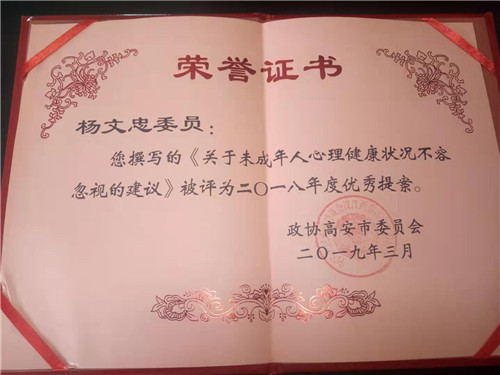 荣誉证书
杨文忠委员：
您撰写的《关于未成年人心理健康状况不容
忽视的建议》被评为二〇一八年度优秀提案。
政协高安市委员会
二〇一九年三月